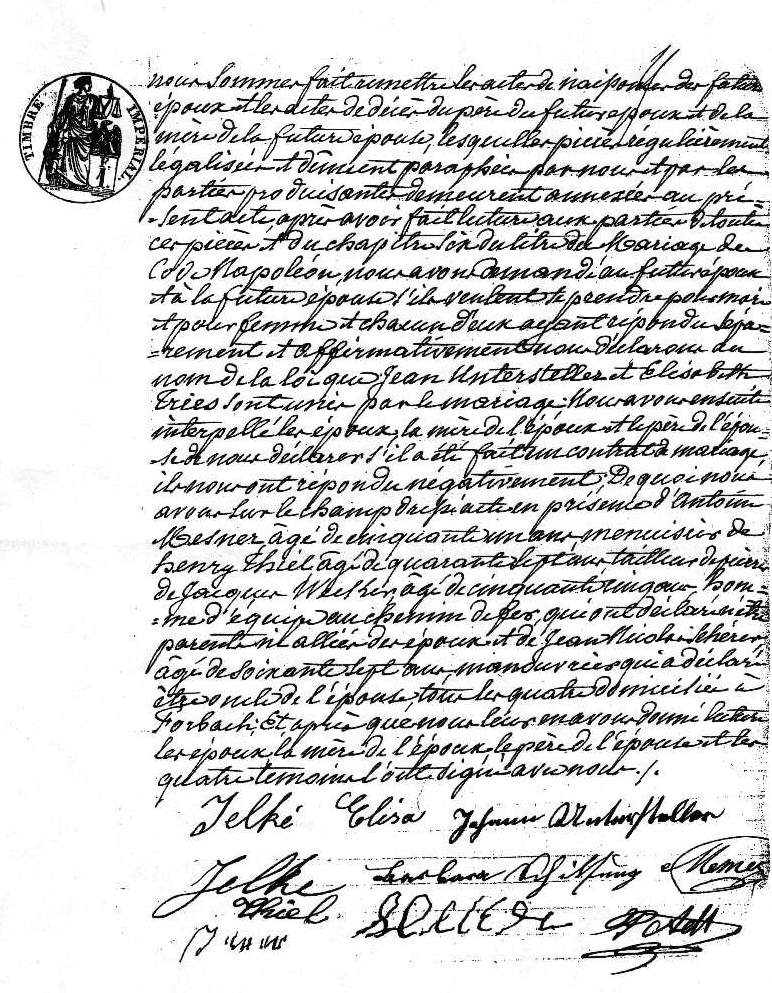 TIMBRE IMPERIAL
nous sommes fait remettre les actes de naissances des futurs
époux et les actes de décès du père du futur époux et de la
mère de la future épouse, lesquelles pièces régulièrement
légalisées et dûment paraphées par nous et par les
parties produisantes demeurent annexées au pré-
-sent acte, après avoir fait lecture aux parties de toutes
ces pièces et du chapitre six du titre du Mariage du
Code Napoléon, nous avons demandé au futur époux
et à la future épouse s'ils veulent se prendre pour mari
et pour femme et chacun d'eux ayant répondu sépa-
-rement et affirmativement nous déclarons au
nom de la loi que Jean Untersteller et Elisabeth
sont unis par le mariage. Nous avons ensuite
interpellé les époux, la mère de l'époux et le père de l'épou-
-se de nous déclarer s'il a été fait un contrat de mariage,
ils nous ont répondu négativement. De quoi nous
avons sur le champ dressé acte en présence d'Antoine
Mesner âgé de cinquante un ans menuisier de
henry Thiel âgé de quarante sept ans tailleur de pierre
de Jacques âgé de cinquante cinq ans, hom-
-me d'équipe au chemin de fer, qui ont déclaré n'être
parents ni alliés des époux et de Jean Nicolas Schérer
âgé de soixante sept ans, manœuvrier qui a déclaré
être oncle de l'épouse, tous les quatre domiciliés à
Forbach; Et, après que nous leur en avons donné lecture
les époux, la mère de l'époux le père de l'épouse et les
quatre témoins l'ont signé avec nous ./.
Elisa Johann Untersteller
Barbara Schilfung
Thiel